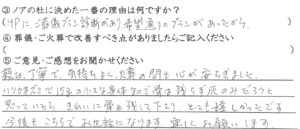 ③ノアの杜に決めた一番の理由は何ですか?
(HPに、ご葬儀プラン診断があり希望通りのプランがあったから。)
④葬儀・ご火葬で改善すべき点がありましたらご記入ください
( )
⑤ご意見・ご感想をお聞かせください
親切、丁寧で、気持ちよく、火葬の間も心が安らぎました。
ハリネズミで15gの小さな身体なので骨は残らず灰のみだろうと
思っていたら、きれいに骨を残して下り、とても嬉しかったです
今後もこちらでお世話になります。宜しくお願いします。